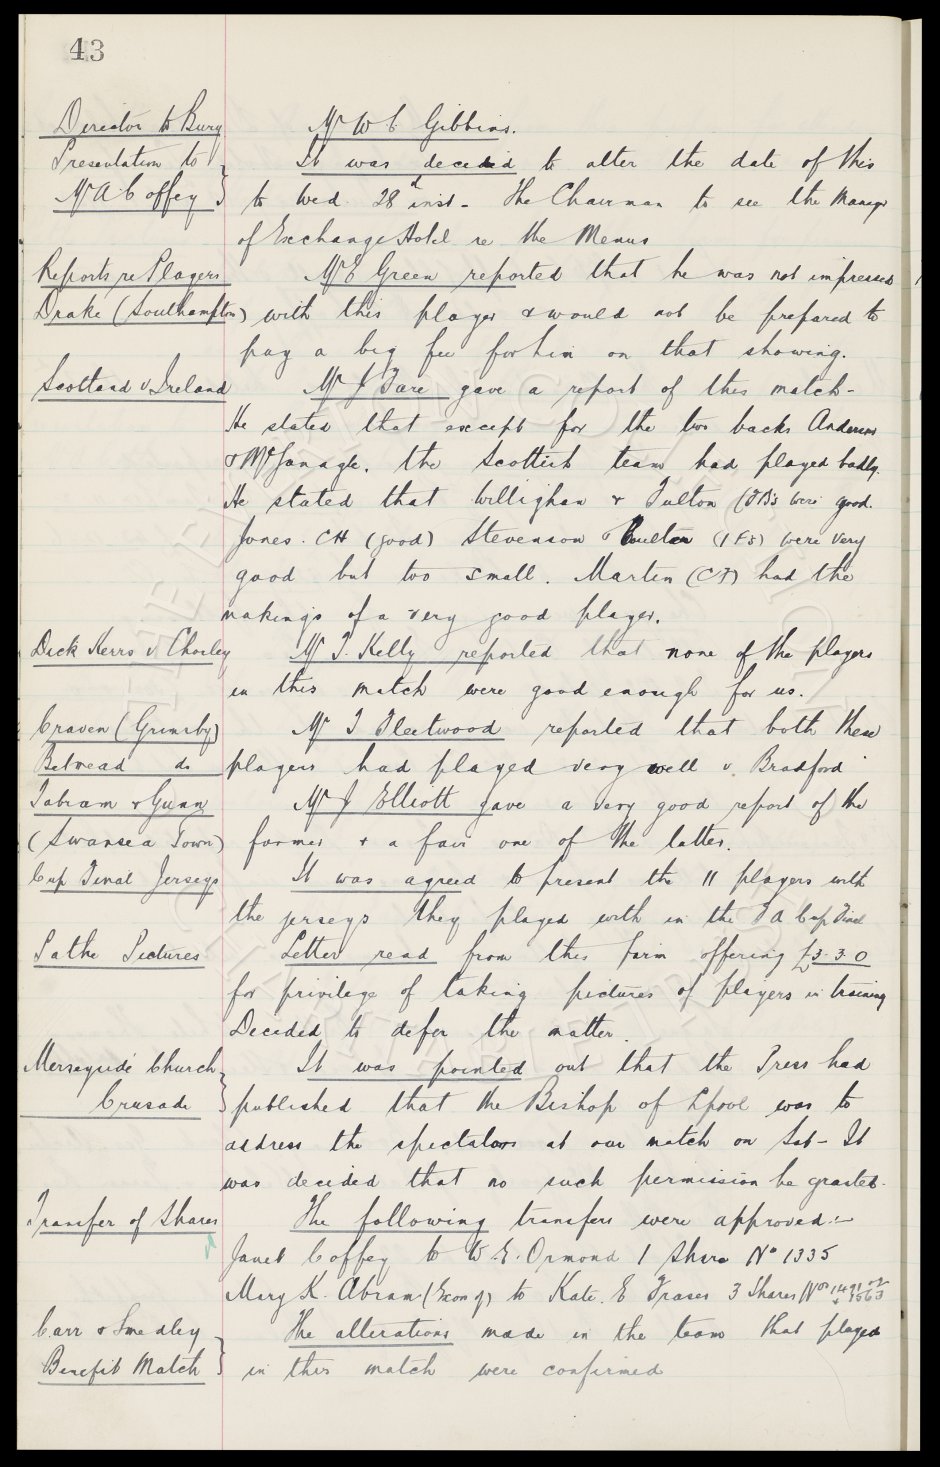 43
Director to Bury Mr W C Gibbins.
Presentation to It was decided to alter the date of this
Mr A Coffey to Wed. 28th inst - The Chairman to see the Manager
of Exchange Hotel re the Menus
Reports re Players Mr E Green reported that he was not impressed
Drake (Southampton) with this player & would not be prepared to
pay a big fee for him on that showing.
Scotland v Ireland Mr J Fare gave a report of this match -
He stated that except for the two backs Anderson
& McGonagle, the Scottish team had played badly.
He stated that Willighan & Fulton (FB's were good.
Jones. CH (good) Stevenson & Coulter (IFs) were very
good but too small. Martin (CF) had the
makings of a very good player.
Dick Kerrs v Chorley Mr T. Kelly reported that none of the players
in this match were good enough for us.
Craven (Grimsby) Mr T Fleetwood reported that both these
Betmead do players had played very well v. Bradford
Tabram & Gunn Mr J Elliott gave a very good report of the
(Swansea Town) former & a fair one of the latter.
Cup Final Jerseys It was agreed to present the 11 players with
the jerseys they played with in the F A Cup Final
Pathe Pictures Letter read from this firm offering £3.3.0
for privilege of taking pictures of players in training
Decided to defer the matter.
Merseyside Church It was pointed out that the Press had
Crusade published that the Bishop of Lpool was to
address the spectators at our match on Sat - It
was decided that no such permission be granted.
Transfer of Shares The following transfers were approved:-
Janet Coffey to W. E. Ormond 1 Share No 1335
Mary K. Abram (Exon of) to Kate. E Fraser 3 Shares Nos 1491/2
& 1563
Carr & Smedley The alterations made in the team that played
Benefit Match in this match were confirmed